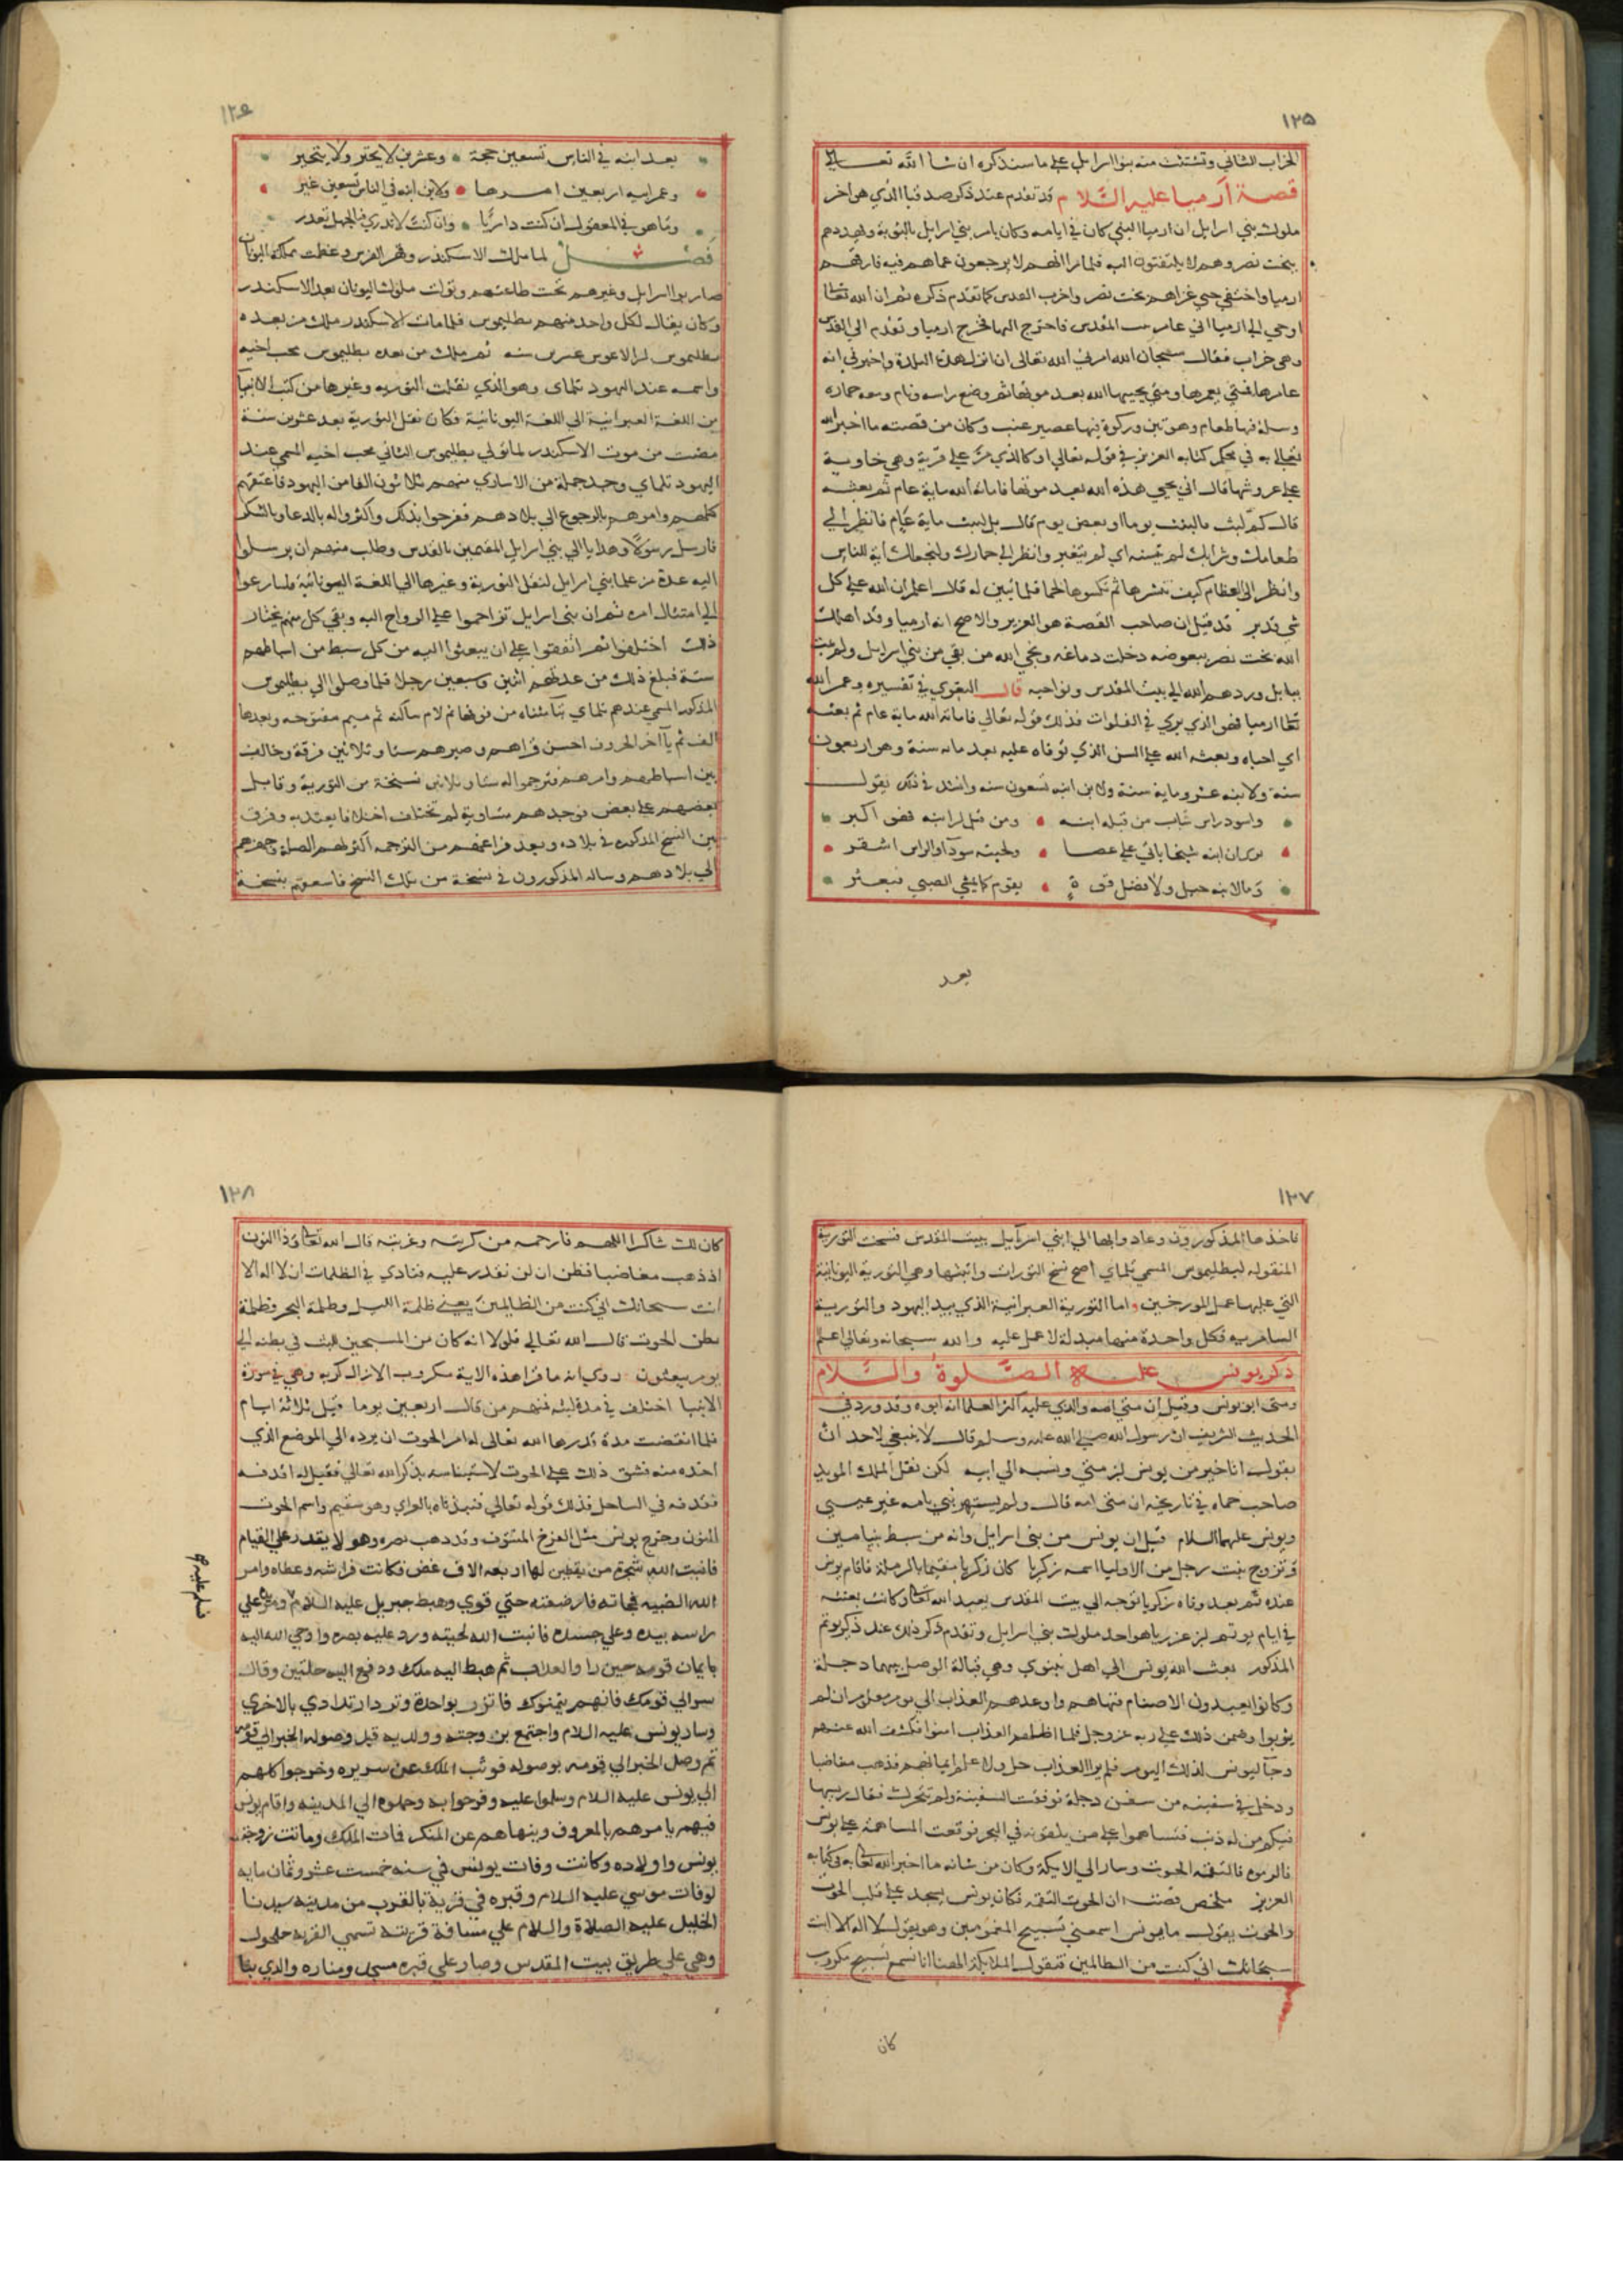 ١٢٥
الخراب الثاني وتشتت منه بنوا اسرايل على ما سنذكره ان شا الله تعالى
قصة آرميا عليه السلام قد تقدم عند ذكر صدقيا الذي هو اخر
ملوك بني اسرايل ان ارميا النبي كان في ايامه وكان يامر بني اسرايل بالتوبة ويهددهم
ببخت نصر وهم لا يلتفتون اليه فلما راانهم لا يرجعون عما هم فيه فارقهم
ارميا واختفي حتي غزاهم بخت نصر واخرب القدس كما تقدم ذكره ثم ان الله تعالى
اوحي الي ارميا اني عامر بيت المقدس فاخرج اليها فخرج ارميا وتقدم الي القدس
وهي خراب فقال سبحان الله امرني الله تعالى ان انزل هذه البلدة واخبرني انه
عامرها فمتي يعمرها ومتي يحييها الله بعد موتها ثم وضع راسه ونام ومعه حماره
وسلة فيها طعام وهو تين وركوة فيها عصير عنب وكان من قصته ما اخبر الله
تعالي به في محكم كتابه العزيز في قوله تعالي او كالذي مر علي قرية وهي خاوية
علي عروشها قال اني يحيي هذه الله بعد موتها فاماته الله ماية عام ثم بعثه
قال كم لبثت قال لبثت يوما او بعض يوم قال بل لبثت ماية عام فانظر الي
طعامك وشرابك لم يتسنه اي لم يتغير وانظر الي حمارك ولنجعلك اية للناس
وانظر الي العظام كيف ننشرها ثم نكسوها لحما فلما تبين له قال اعلم ان الله علي كل
شي قدير قد قيل ان صاحب القصة هو العزير والاصح انه ارميا وقد اهلك
الله بخت نصر ببعوضه دخلت دماغه ونجي الله من بقي من بني اسرايل ولم يمت
ببابل وردهم الله الي بيت المقدس ونواحيه قال البغوي في تفسيره وعمر الله
تعالى ارميا فهو الذي يري في الفلوات فذلك قوله تعالي فاماته الله ماية عام ثم بعثه
اي احياه وبعثه الله علي السن الذي توفاه عليه بعد مايه سنة وهو اربعون
سنة ولابنه عشر وماية سنة ولابن ابنه تسعون سنه وانشد في ذلك يقول
واسود راس شاب من قبله ابنه ومن قبل ابنه فهو اكبر
يري ان ابنه شيخا ياتي علي عصا ولحيته سودآ والراس اشقر
وما لابنه حيل ولا فضل قوة يقوم كما يمشي الصبي فيعثر
بعد
١٢٦
يعد ابنه في الناس تسعين حجة وعشرين لا يجتر ولا يتبختر
وعمر ابيه اربعين امرها ولابن ابنه في الناس تسعين غبر
وما هو في المعقول ان كنت داريا وان كنت لا تدري فبالجهل تعذر
فصل لما ملك الاسكندر وقهر الفرس وعظمت مملكة اليونان
صار بنوا اسرايل وغيرهم تحت طاعتهم وتوالت ملوك اليونان بعد الاسكندر
وكان يقال لكل واحد منهم بطليموس فلما مات الاسكندر ملك من بعده
بطليموس عشرين سنه ثم ملك من بعده بطليموس محب اخيه
واسمه عند اليهود تلماي وهو الذي نقلت التوريه وغيرها من كتب الانبيا
من اللغة العبرانية الي اللغة اليونانية فكان نقل التورية بعد عشرين سنة
مضت من موت الاسكندر لما تولي بطليموس الثاني محب اخيه المسمي عند
اليهود تلماي وجد جملة من الاساري منهم ثلاثون الفا من اليهود فاعتقهم
كلهم وامرهم بالرجوع الي بلادهم ففرحوا بذلك واكثروا له بالدعا والشكر
فارسل رسولا وهدايا الي بني اسرايل المقيمين بالقدس وطلب منهم ان يرسلوا
اليه عدة من علما بني اسرايل لنقل التورية وغيرها الي اللغة اليونانية فسارعوا
الي امتثال امره ثم ان بني اسرايل تزاحموا علي الرواح اليه وبقي كل منهم يختار
ذلك اختلفوا ثم اتفقوا علي ان يبعثوا اليه من كل سبط من اسباطهم
ستة فبلغ ذلك من عددهم اثنين وسبعين رجلا فلما وصلوا الي بطليموس
المذكور المسمي عندهم تلماي بتا مثناه من فوقها ثم لام ساكنه ثم ميم مفتوحه وبعدها
الف ثم يآ اخر الحروف احسن قراهم وصيرهم ستا وثلاثين فرقة وخالف
بين اسباطهم وامرهم فترجموا له ستا وثلاثين نسخة من التورية وقابل
بعضهم علي بعض فوجدهم متساوية لم تختلف اختلافا يعتد به وفرق
بين النسخ المذكوره في بلاده وبعد فراغهم من الترجمه اكثر لهم الصلات وجهزهم
الي بلادهم وساله المذكورون في نسخة من تلك النسخ فاسعفهم بنسخة
١٢٧
فاخذها المذكورون وعادوا بها الي ابني اسرآيل ببيت المقدس فنسخت التورية
المنقوله لبطليموس المسمي تلماي اصح نسخ التورات واثبتها وهي التورية اليونانية
التي عليها عمل المورخين واما التورية العبرانية الذي بيد اليهود والتورية
السامريه فكل واحدة منهما مبدلة لا عمل عليه والله سبحانه وتعالي اعلم
ذكر يونس عليه الصلوة والسلام
ومتى ابو يونس وقيل ان متي امه والذي عليه اكثر العلما انه ابوه وقد ورد في
الحديث الشريف ان رسول الله صلي الله عليه وسلم قال لا ينبغي لاحد ان
يقول انا خير من يونس بن متي ونسبه الي ابيه لكن نقل الملك المويد
صاحب حماه في تاريخه ان متي امه قال ولم يشتهر نبي بامه غير عيسي
ويونس عليهما السلام قيل ان يونس من بني اسرايل وانه من سبط بنيامين
وتزوج بنت رجل من الاوليا اسمه زكريا كان زكريا مقيما بالرملة فاقام يونس
عنده ثم بعد وفاة زكريا توجه الي بيت المقدس يعبد الله تعالى وكانت بعثته
في ايام يوتم بن عزريا هو احد ملوك بني اسرايل وتقدم ذكر ذلك عند ذكر يوثم
المذكور بعث الله يونس الي اهل نينوي وهي قبالة الموصل بينهما دجلة
وكانوا يعبدون الاصنام فنهاهم واوعدهم العذاب الي يوم معلوم ان لم
يتوبوا وضمن ذلك علي ربه عز وجل فلما اظلهم العذاب امنوا فكشف الله عنهم
وجآ يونس لذلك اليوم فلم ير العذاب حل ولا علم ايمانهم فذهب مغاضبا
ودخل في سفينه من سفن دجلة فوقفت السفينة ولم تتحرك فقال ربيها
فيكم من له ذنب فتساهموا علي من يلقونه في البحر فوقعت المساهمة علي يونس
فالقوه فالتقمه الحوت وسار الي الايكة وكان من شانه ما اخبر الله تعالى به في كتابه
العزيز ملخص قصته ان الحوت التقمه فكان يونس يسجد علي قلب الحوت
والحوت يقول يا يونس اسمعني تسبيح المغمومين وهو يقول لا اله الا انت
سبحانك اني كنت من الظالمين فتقول الملايكة الهنا انا نسمع تسبيح مكروب
كان
١٢٨
كان لك شاكرا اللهم فارحمه من كربته وغربته قال الله تعالى وذا النون
اذ ذهب مغاضبا فظن ان لن نقدر عليه فنادي في الظلمات ان لا اله الا
انت سبحانك اني كنت من الظالمين يعني ظلمة الليل وظلمة البحر وظلمة
بطن الحوت قال الله تعالي فلولا انه كان من المسبحين للبث في بطنه الي
يوم يبعثون روي انه ما قرا هذه الاية مكروب الا زال كربه وهي في سورة
الانبيا اختلف في مدة لبثه فمنهم من قال اربعين يوما وقيل ثلاثة ايام
فلما انقضت مدة قدرها الله تعالى له امر الحوت ان يرده الي الموضع الذي
اخذه منه فشق ذلك علي الحوت لاستيناسه بذكر الله تعالي فقيل له اقذفه
فقذفه في الساحل فذلك قوله تعالي فنبذناه بالعراي وهو سقيم واسم الحوت
النون وخرج يونس مثل الفرخ المنتوف وقد ذهب بصره وهو لا يقدر علي القيام
فانبت الله شجرة من يقطين لها اربعه الاف غصن فكانت فراشه وغطاه وامر
الله الظبيه فجاته فارضعته حتي قوي وهبط جبريل عليه السلام ومر علي
راسه بيده وعلي جسده فانبت الله لحيته ورد عليه بصره واوحي الله اليه
بايمان قومه حين راوا العذاب ثم هبط اليه ملك ودفع اليه حلتين وقال
سر الي قومك فانهم يتمنوك فاتزر بواحدة وتردا ارتدادي بالاخري
وسار يونس عليه السلام واجتمع بزوجته وولديه قبل وصوله الخبر الي قومه
ثم وصل الخبر الي قومه بوصوله فوثب الملك عن سريره وخرجوا كلهم
الي يونس عليه السلام وسلموا عليه وفرحوا به وحملوه الي المدينه واقام يونس
فيهم يامرهم بالمعروف وينهاهم عن المنكر فمات الملك وماتت زوجة
يونس واولاده وكانت وفات يونس في سنه خمست عشر وثمان مايه
لوفات موسي عليه السلام وقبره في قرية بالقرب من مدينه سيدنا
الخليل عليه الصلاة والسلام علي مسافة قريبة تسمي القريه حلحول
وهي علي طريق بيت المقدس وصار علي قبره مسجد ومناره والذي بنا